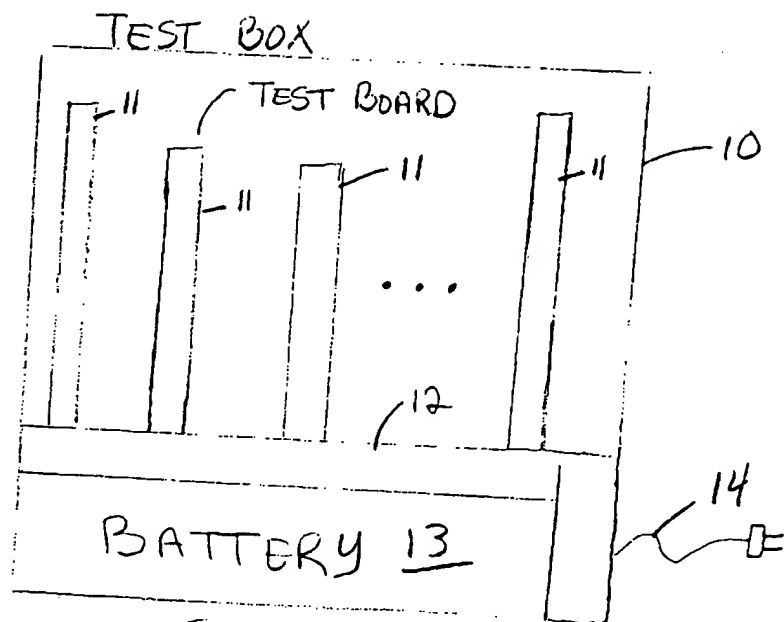 TEST BOX
11 TEST BOARD
10
11 11 11
...
12
14
BATTERY 13